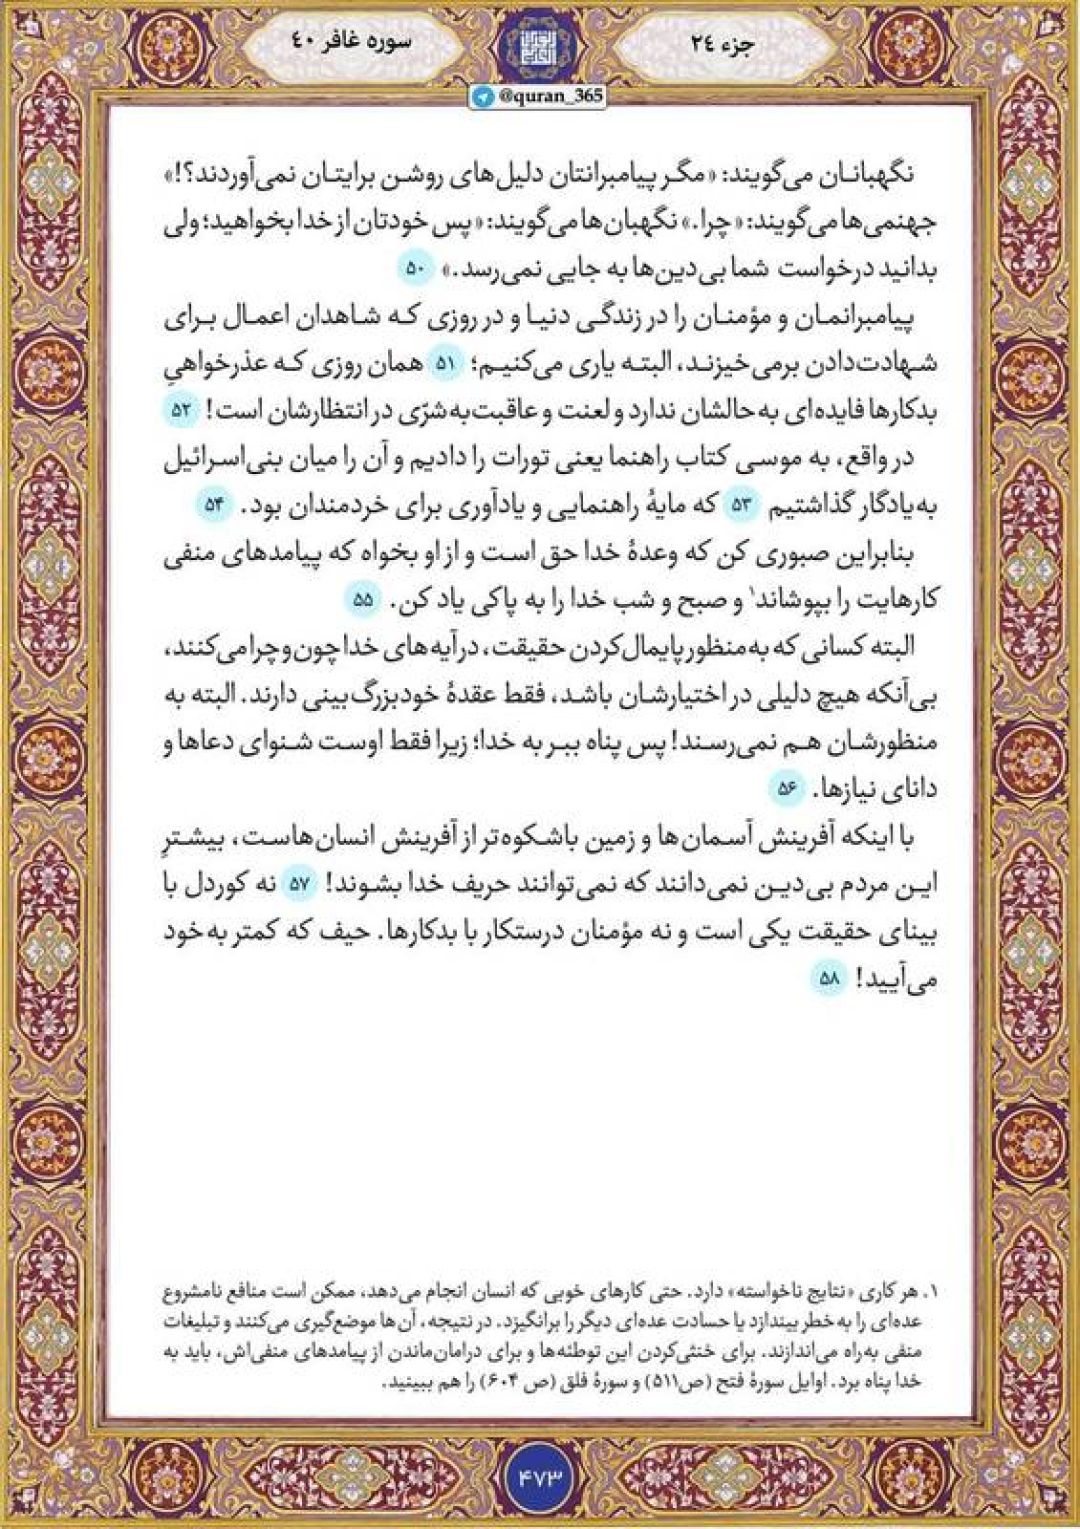 جزء ۲۴
سوره غافر ۴۰
@quran_365
نگهبانان می‌گویند: «مگر پیامبرانتان دلیل‌های روشن برایتان نمی‌آوردند؟!»
جهنمی‌ها می‌گویند: «چرا.» نگهبان‌ها می‌گویند: «پس خودتان از خدا بخواهید؛ ولی
بدانید درخواست شما بی‌دین‌ها به جایی نمی‌رسد.» ۵۰
پیامبرانمان و مؤمنان را در زندگی دنیا و در روزی که شاهدان اعمال برای
شهادت‌دادن برمی‌خیزند، البته یاری می‌کنیم؛ ۵۱ همان روزی که عذرخواهیِ
بدکارها فایده‌ای به حالشان ندارد و لعنت و عاقبت‌به‌شرّی در انتظارشان است! ۵۲
در واقع، به موسی کتاب راهنما یعنی تورات را دادیم و آن را میان بنی‌اسرائیل
به‌یادگار گذاشتیم ۵۳ که مایهٔ راهنمایی و یادآوری برای خردمندان بود. ۵۴
بنابراین صبوری کن که وعدهٔ خدا حق است و از او بخواه که پیامدهای منفی
کارهایت را بپوشاند۱ و صبح و شب خدا را به پاکی یاد کن. ۵۵
البته کسانی که به‌منظور پایمال‌کردن حقیقت، در آیه‌های خدا چون‌وچرا می‌کنند،
بی‌آنکه هیچ دلیلی در اختیارشان باشد، فقط عقدهٔ خودبزرگ‌بینی دارند. البته به
منظورشان هم نمی‌رسند! پس پناه ببر به خدا؛ زیرا فقط اوست شنوای دعاها و
دانای نیازها. ۵۶
با اینکه آفرینش آسمان‌ها و زمین باشکوه‌تر از آفرینش انسان‌هاست، بیشترِ
این مردم بی‌دین نمی‌دانند که نمی‌توانند حریف خدا بشوند! ۵۷ نه کوردل با
بینای حقیقت یکی است و نه مؤمنان درستکار با بدکارها. حیف که کمتر به خود
می‌آیید! ۵۸
۱. هر کاری «نتایج ناخواسته» دارد. حتی کارهای خوبی که انسان انجام می‌دهد، ممکن است منافع نامشروع
عده‌ای را به خطر بیندازد یا حسادت عده‌ای دیگر را برانگیزد. در نتیجه، آن‌ها موضع‌گیری می‌کنند و تبلیغات
منفی به‌راه می‌اندازند. برای خنثی‌کردن این توطئه‌ها و برای درامان‌ماندن از پیامدهای منفی‌اش، باید به
خدا پناه برد. اوایل سورهٔ فتح (ص۵۱۱) و سورهٔ فلق (ص ۶۰۴) را هم ببینید.
۴۷۳